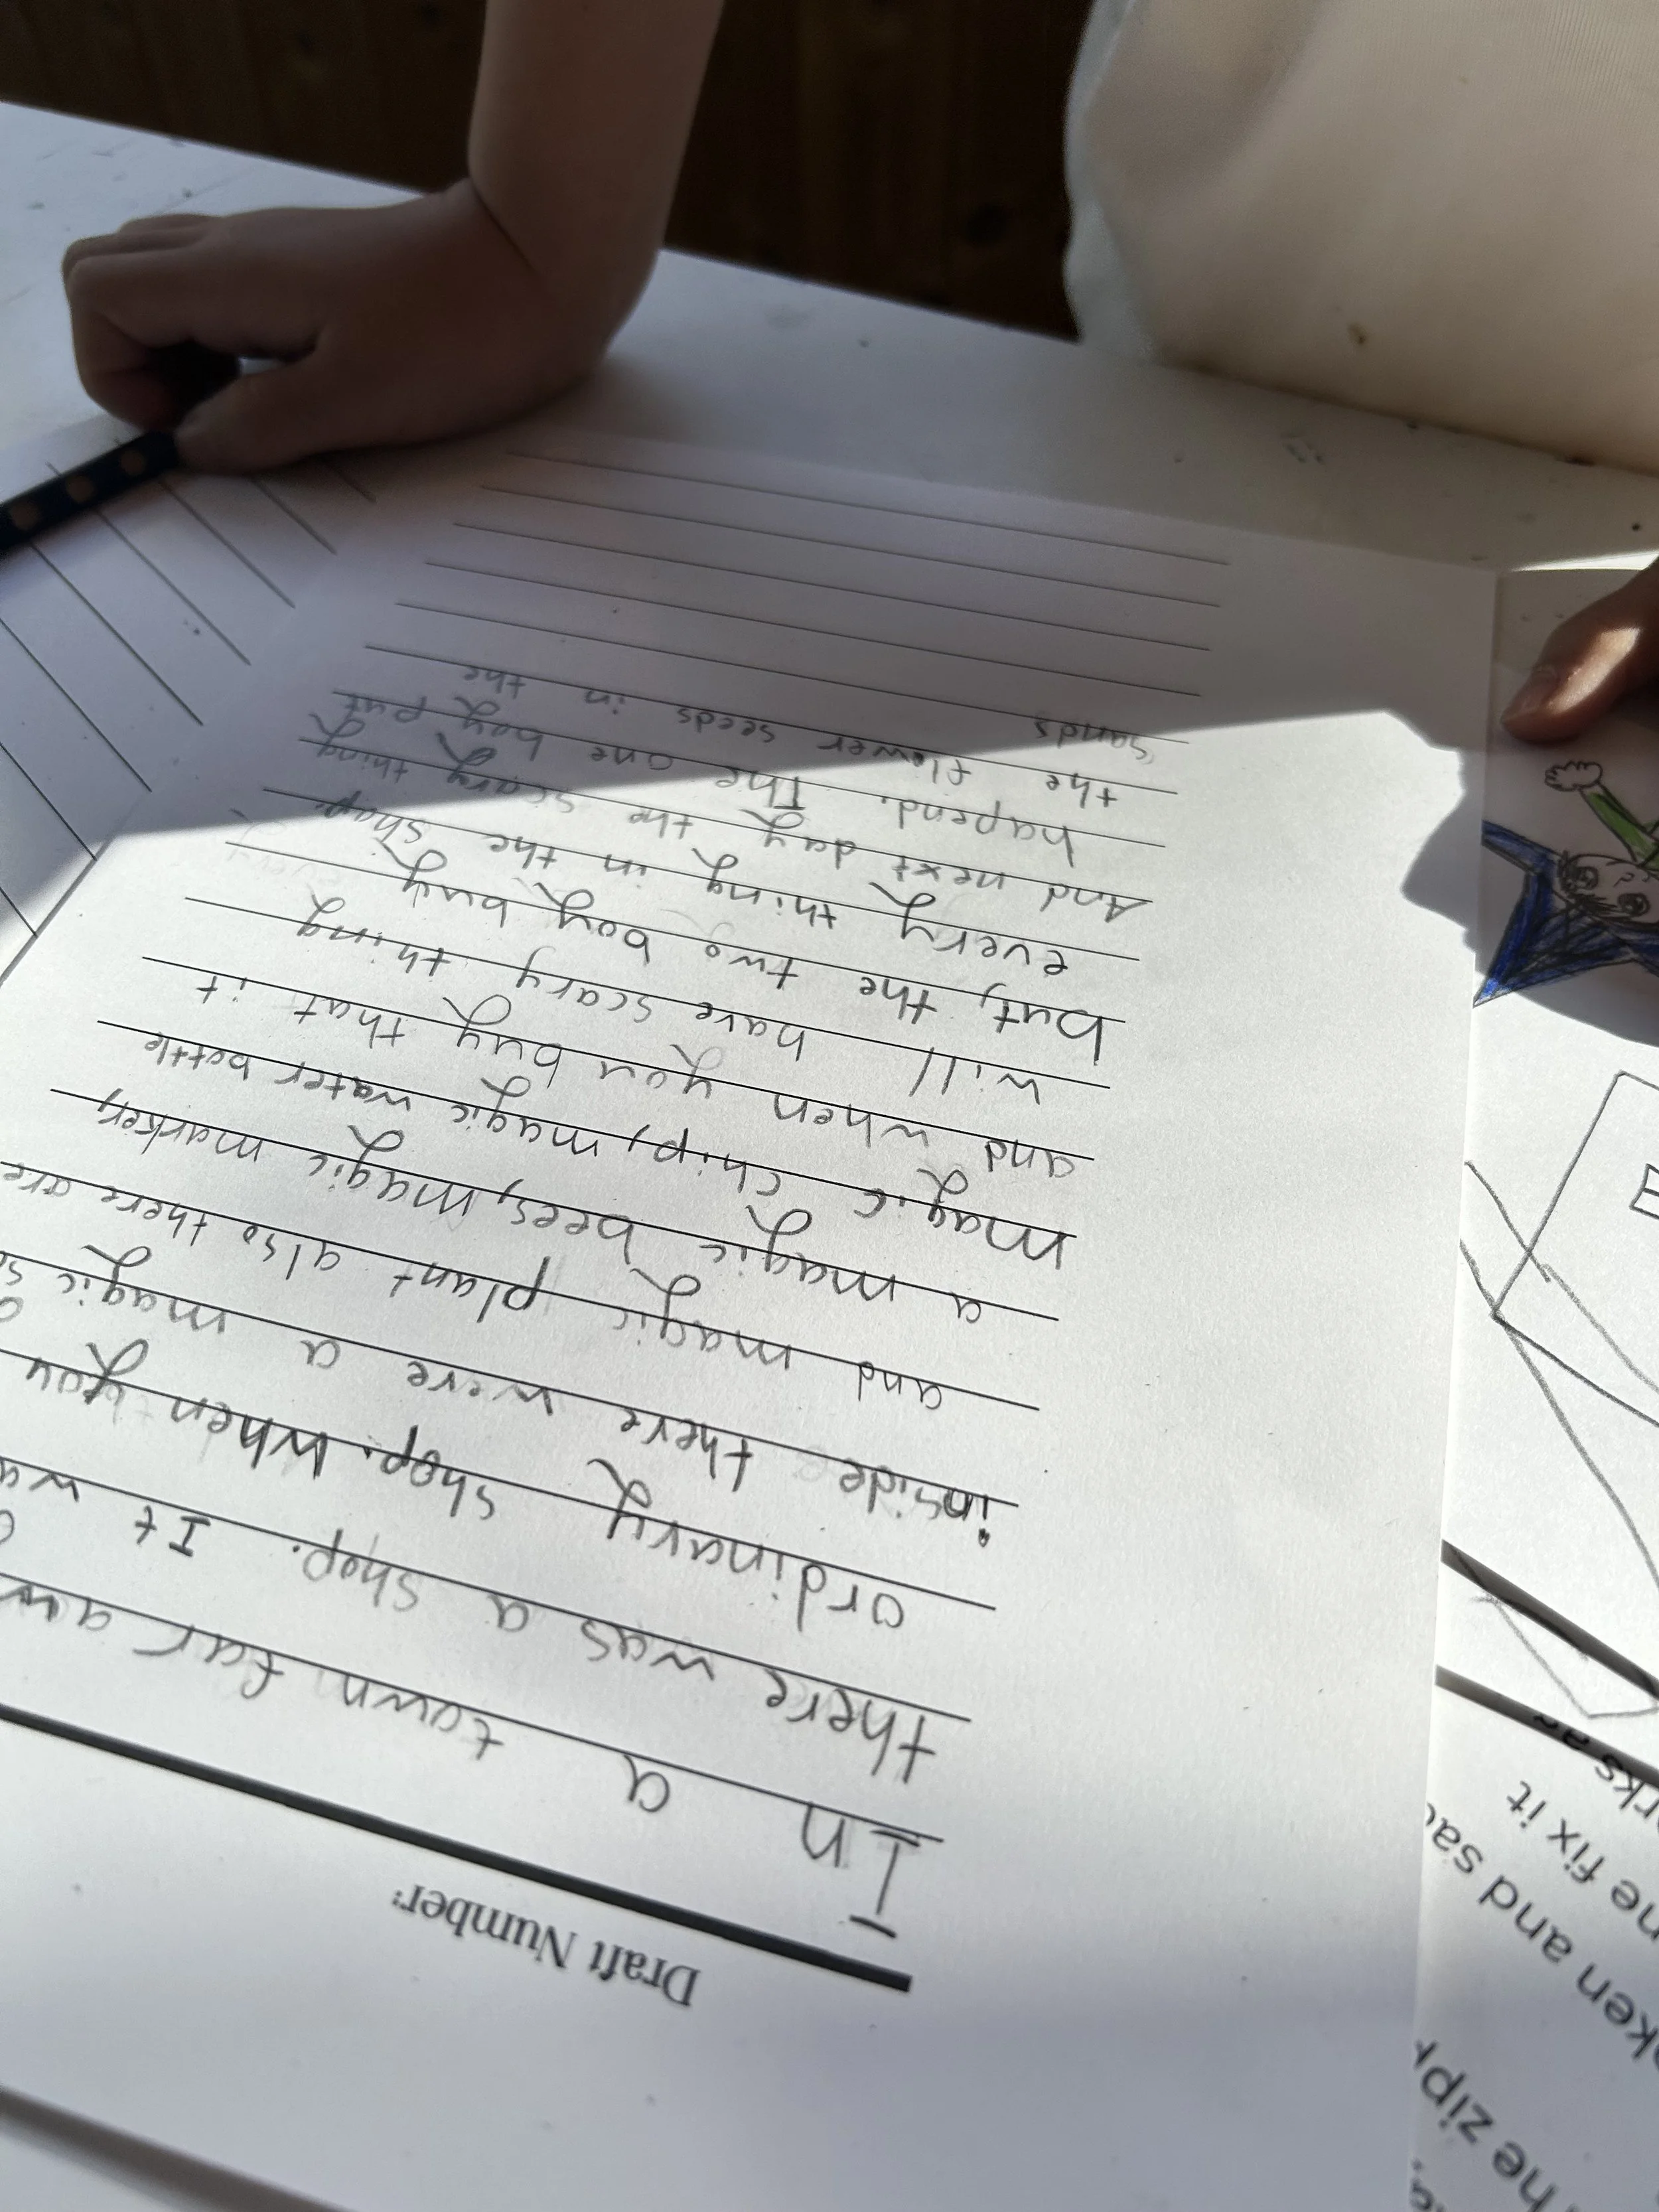 Draft Number:
In a town far aw
there was a shop. It wa
ordinary shop. When you
inside there were a magic
and magic plant also there are
a magic bees, magic marker,
magic chip, magic water bottle
and when you buy that it
will have scary thing
but, the two boy buy
every thing in the shop.
And next day the scary thing
hapend. The one boy put
the flower seeds in the
sands
he zipp
ken and sa
ne fix it
rks a
E